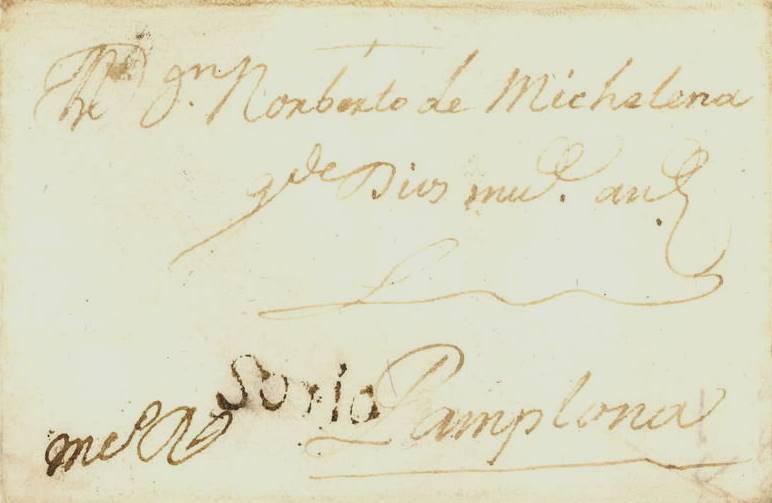 Norberto de Michelena
gde Dios mus. as.
Soria
Pamplona